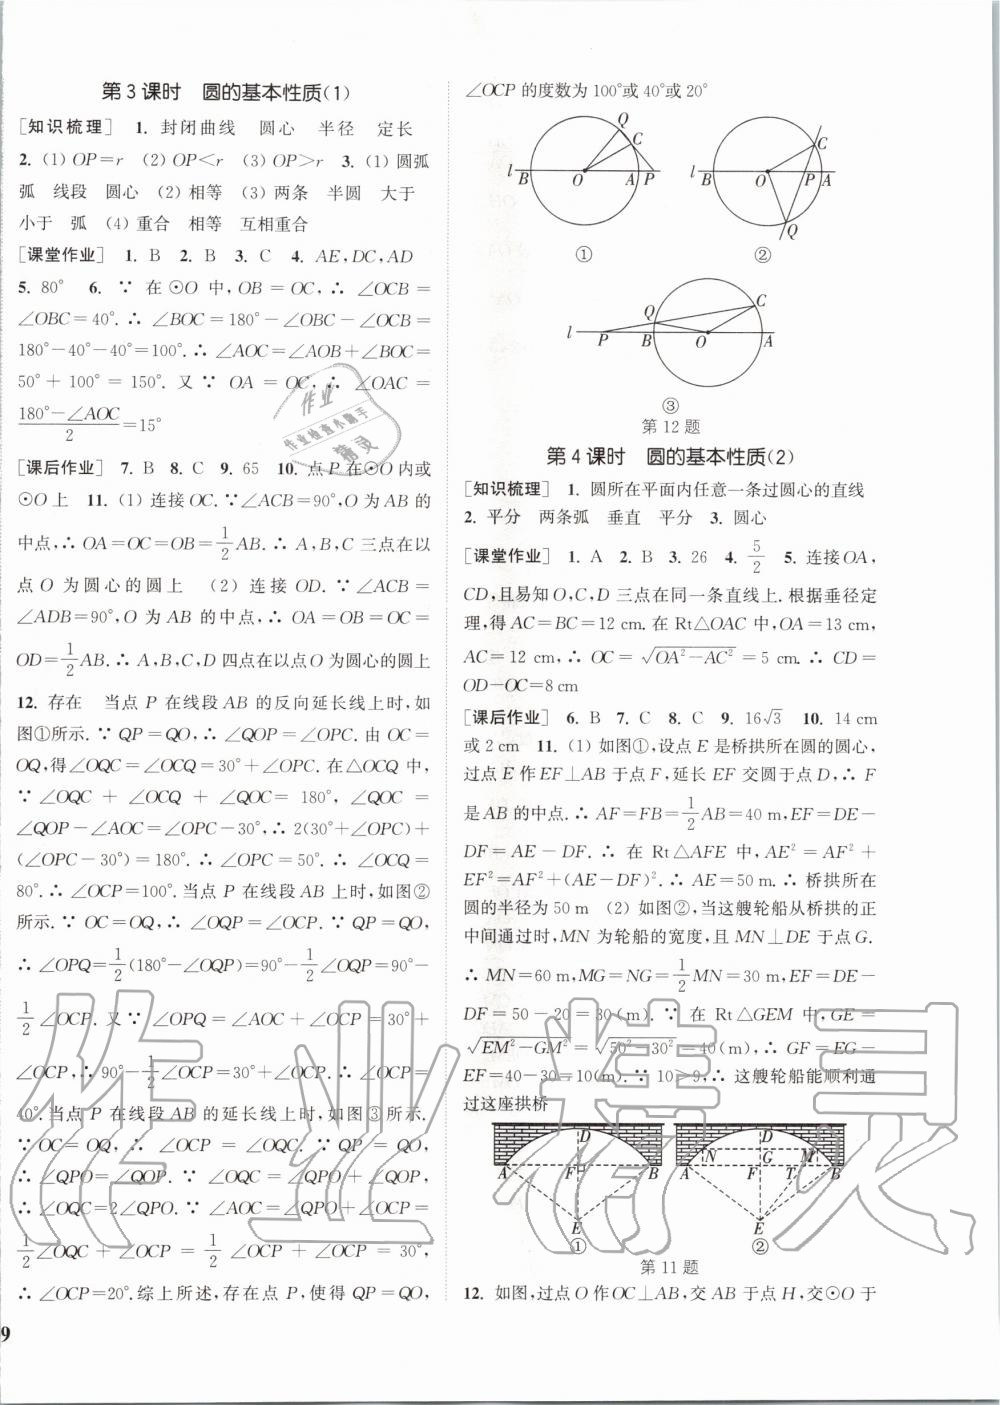 第3课时　圆的基本性质(1)
[知识梳理]　1. 封闭曲线　圆心　半径　定长
2. (1) OP=r　(2) OP<r　(3) OP>r　3. (1) 圆弧
弧　线段　圆心　(2) 相等　(3) 两条　半圆　大于
小于　弧　(4) 重合　相等　互相重合
[课堂作业]　1. B　2. B　3. C　4. AE,DC,AD
5. 80°　6. ∵ 在⊙O中,OB=OC,∴ ∠OCB=
∠OBC=40°.∴ ∠BOC=180°-∠OBC-∠OCB=
180°-40°-40°=100°.∴ ∠AOC=∠AOB+∠BOC=
50°+100°=150°. 又∵ OA=OC,∴ ∠OAC=
(180°-∠AOC)/2=15°
[课后作业]　7. B　8. C　9. 65　10. 点P在⊙O内或
⊙O上　11. (1) 连接OC.∵∠ACB=90°,O为AB的
中点,∴ OA=OC=OB=1/2AB.∴ A,B,C三点在以
点O为圆心的圆上　(2) 连接OD.∵∠ACB=
∠ADB=90°,O为AB的中点,∴ OA=OB=OC=
OD=1/2AB.∴ A,B,C,D四点在以点O为圆心的圆上
12. 存在　当点P在线段AB的反向延长线上时,如
图①所示.∵ QP=QO,∴∠QOP=∠OPC.由OC=
OQ,得∠OQC=∠OCQ=30°+∠OPC.在△OCQ中,
∵ ∠OQC+∠OCQ+∠QOC=180°,∠QOC=
∠QOP-∠AOC=∠OPC-30°,∴ 2(30°+∠OPC)+
(∠OPC-30°)=180°.∴ ∠OPC=50°.∴ ∠OCQ=
80°.∴ ∠OCP=100°.当点P在线段AB上时,如图②
所示.∵ OC=OQ,∴ ∠OQP=∠OCP.∵ QP=QO,
∴ ∠OPQ=1/2(180°-∠OQP)=90°-1/2∠OQP=90°-
1/2∠OCP. 又∵ ∠OPQ=∠AOC+∠OCP=30°+
∠OCP,∴ 90°-1/2∠OCP=30°+∠OCP.∴ ∠OCP=
40°.当点P在线段AB的延长线上时,如图③所示.
∵ OC=OQ,∴ ∠OCP=∠OQC.∵ QP=QO,
∴ ∠QPO=∠QOP.∵ ∠OQC=∠QPO+∠QOP,
∴ ∠OQC=2∠QPO.∵ ∠AOC=∠QPO+∠OCP=
1/2∠OQC+∠OCP=1/2∠OCP+∠OCP=30°,
∴ ∠OCP=20°.综上所述,存在点P,使得QP=QO,
9
∠OCP的度数为100°或40°或20°
Q C l B O A P
①
l B O P A C Q
②
l P Q B O A C
③
第12题
第4课时　圆的基本性质(2)
[知识梳理]　1. 圆所在平面内任意一条过圆心的直线
2. 平分　两条弧　垂直　平分　3. 圆心
[课堂作业]　1. A　2. B　3. 26　4. 5/2　5. 连接OA,
CD,且易知O,C,D三点在同一条直线上.根据垂径定
理,得AC=BC=12 cm.在Rt△OAC中,OA=13 cm,
AC=12 cm,∴ OC=√(OA²-AC²)=5 cm.∴ CD=
OD-OC=8 cm
[课后作业]　6. B　7. C　8. C　9. 16√3　10. 14 cm
或2 cm　11. (1) 如图①,设点E是桥拱所在圆的圆心,
过点E作EF⊥AB于点F,延长EF交圆于点D,∴ F
是AB的中点.∴ AF=FB=1/2AB=40 m,EF=DE-
DF=AE-DF.∴ 在Rt△AFE中,AE²=AF²+
EF²=AF²+(AE-DF)².∴ AE=50 m.∴ 桥拱所在
圆的半径为50 m　(2) 如图②,当这艘轮船从桥拱的正
中间通过时,MN为轮船的宽度,且MN⊥DE于点G.
∴ MN=60 m,MG=NG=1/2MN=30 m,EF=DE-
DF=50-20=30(m).∵ 在Rt△GEM中,GE=
√(EM²-GM²)=√(50²-30²)=40(m),∴ GF=EG-
EF=40-30=10(m).∵ 10>9,∴ 这艘轮船能顺利通
过这座拱桥
D A F B E
①
D N G M A F T B E
②
第11题
12. 如图,过点O作OC⊥AB,交AB于点H,交⊙O于
作业精灵
作业
作业检查小助手
精灵